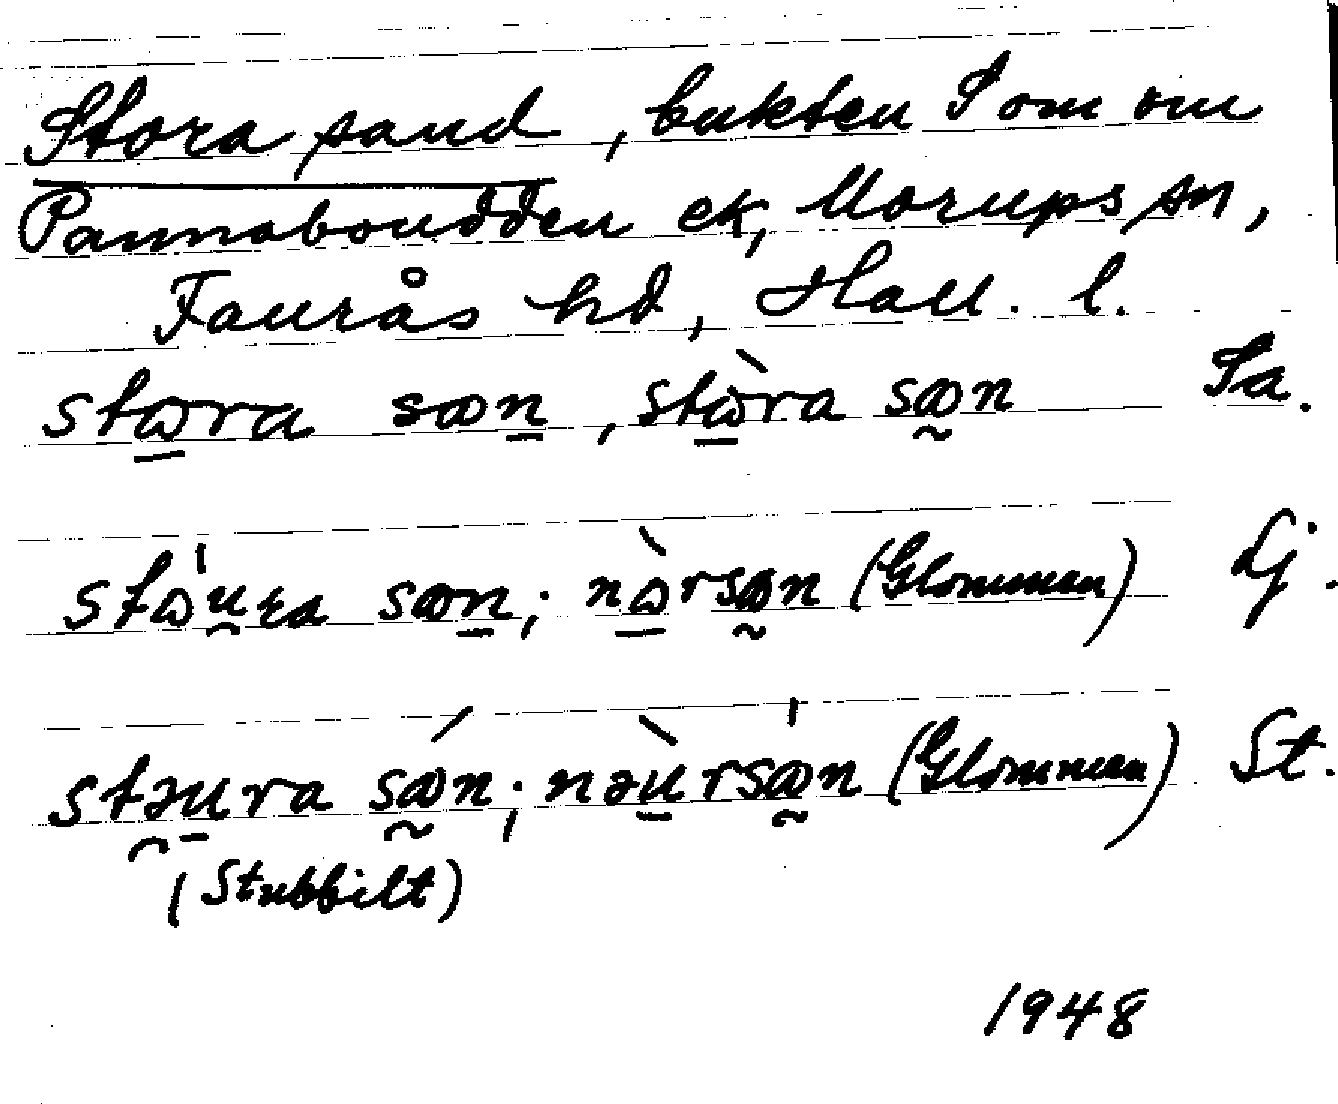 Stora sand, bukten S om om
Pannaboudden ek, Morups sn,
Faurås hd, Hall. l.
stɷra sɷn, stɷ̀ra sɷn Sa.
stɷ'ura sɷn; nɷ̀rsɷn (Glommen) Lj.
stəura sɷ́n; nəùrsɷ'n (Glommen) St.
(Stubbilt)
1948